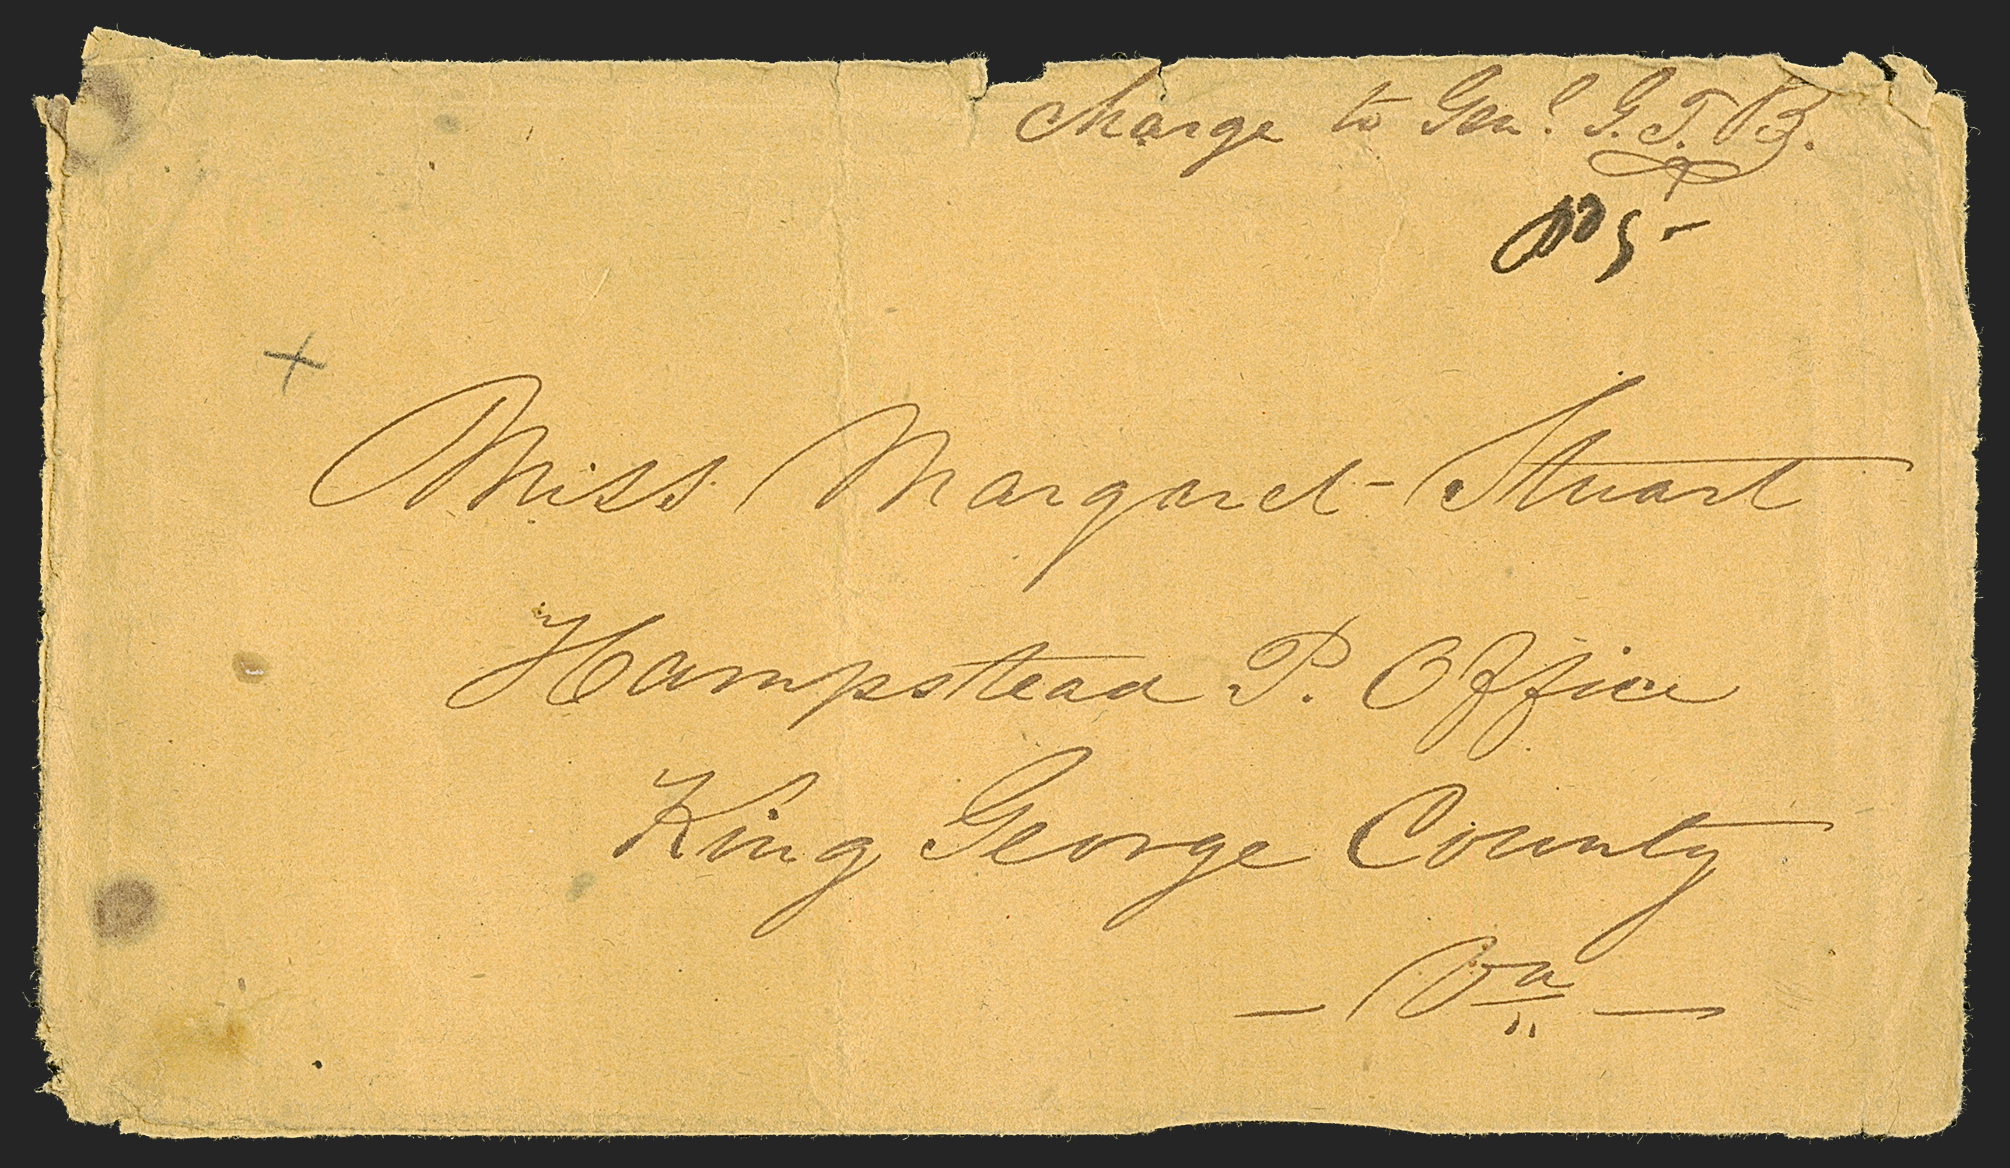 Charge to Genl G. T. B.
Miss Margaret Stuart
Hampstead P. Office
King George County
— Va —